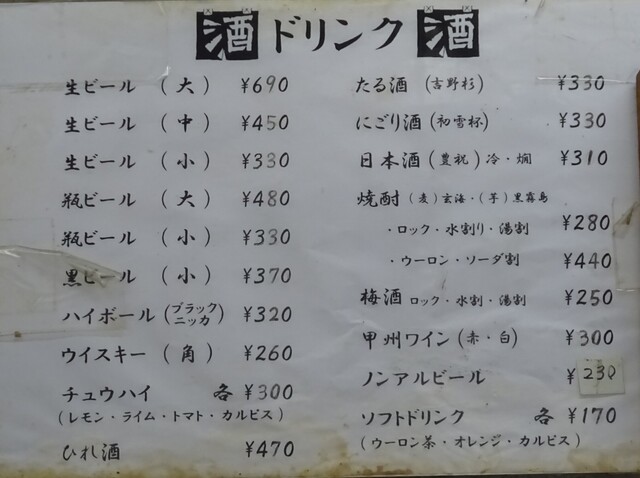 酒 ドリンク 酒
生ビール （大） ¥690
生ビール （中） ¥450
生ビール （小） ¥330
瓶ビール （大） ¥480
瓶ビール （小） ¥330
黒ビール （小） ¥370
ハイボール（ブラックニッカ） ¥320
ウイスキー （角） ¥260
チュウハイ 各 ¥300
（レモン・ライム・トマト・カルピス）
ひれ酒 ¥470
たる酒 （吉野杉） ¥330
にごり酒（初雪杯） ¥330
日本酒（豊祝）冷・燗 ¥310
焼酎（麦）玄海・（芋）黒霧島
・ロック・水割り・湯割 ¥280
・ウーロン・ソーダ割 ¥440
梅酒 ロック・水割・湯割 ¥250
甲州ワイン（赤・白） ¥300
ノンアルビール ¥230
ソフトドリンク 各 ¥170
（ウーロン茶・オレンジ・カルピス）